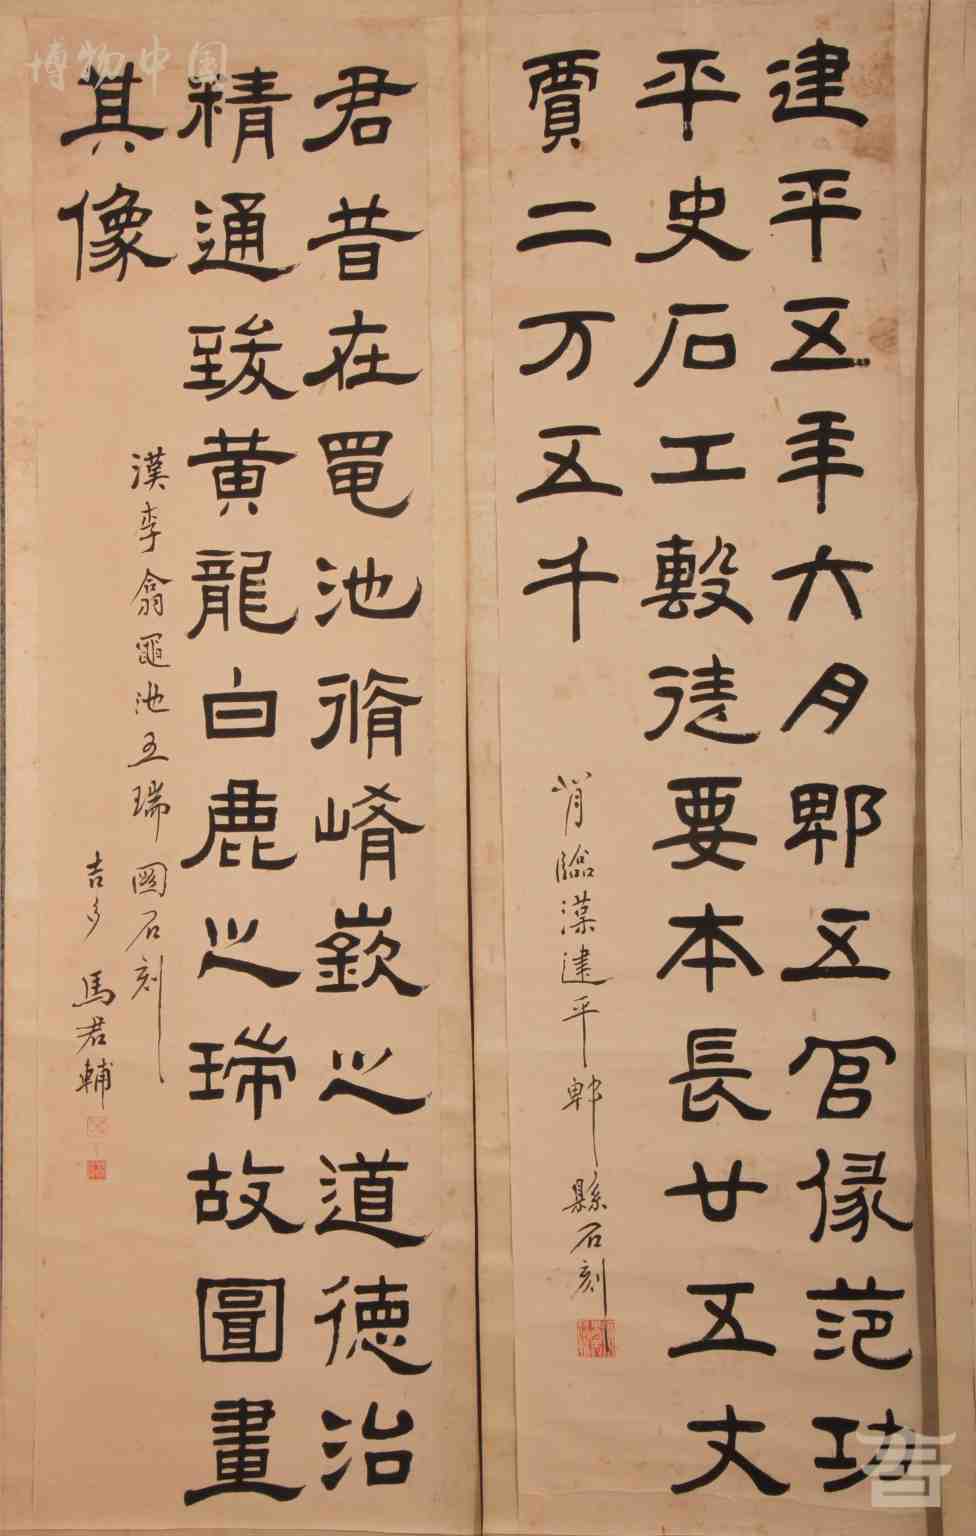 建平五年六月郫五官掾范功
平史石工㲄徒要本長廿五丈
賈二万五千
背臨漢建平郫縣石刻
君昔在黽池脩崤嶔之道德治
精通致黃龍白鹿之瑞故圖畫
其像
漢李翕黽池五瑞圖石刻
吉多 馬君輔
博物中国